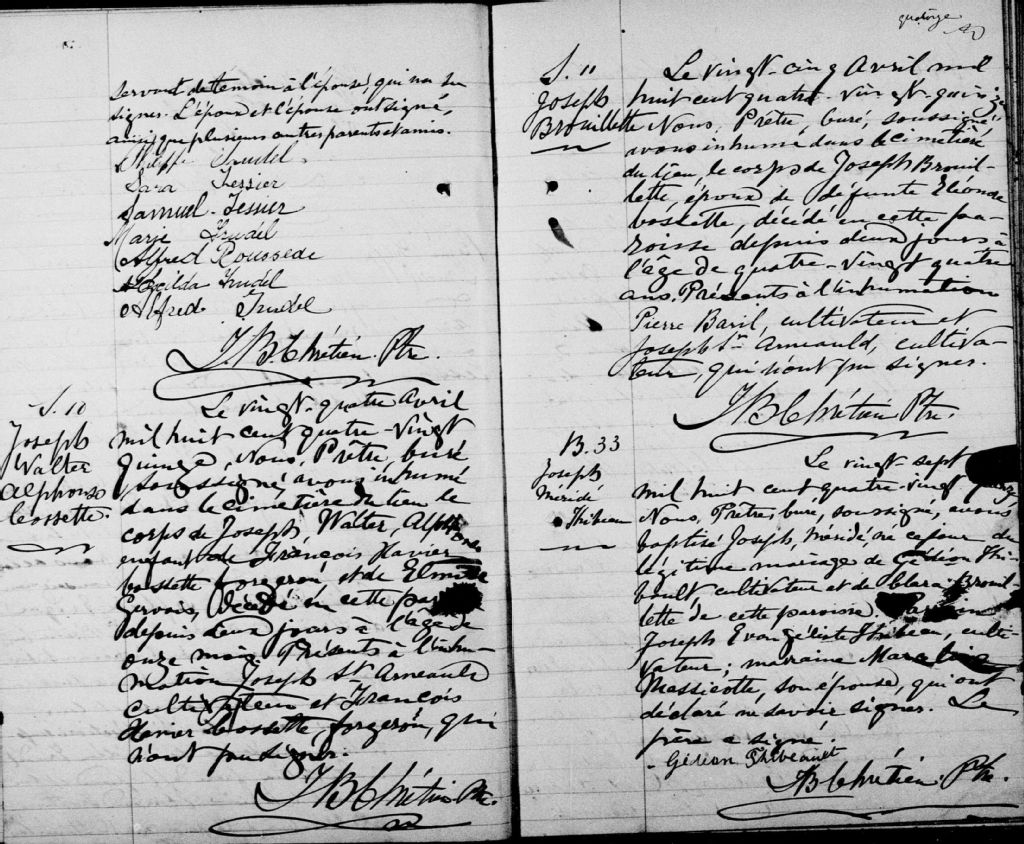 servant de témoin à l'épouse, qui n'a su
signer. L'époux et l'épouse ont signé,
ainsi que plusieurs autres parents et amis.
Trudel
Sara Tessier
Samuel Tessier
Marie Trudel
Alfred Rousseau
Trudel
Alfred Trudel
J.B. Chrétien Ptre.
S. 10
Joseph
Walter
Alphonse
Cossette.
Le vingt-quatre Avril
mil huit cent quatre-vingt
quinze, Nous, Prêtre, curé
soussigné, avons inhumé
dans le cimetière du lieu le
corps de Joseph, Walter, Alphonse
enfant de François Xavier
Cossette forgeron, et de
Gervais, décédé en cette
depuis deux jours à l'âge de
onze mois. Présents à l'inhu-
mation Joseph St Arneauld
cultivateur et François
Xavier Cossette, forgeron, qui
n'ont pu signer.
J.B. Chrétien Ptre.
quatorze
S. 11
Joseph
Brouillette
Le vingt-cinq Avril mil
huit cent quatre-vingt-quinze
Nous, Prêtre, Curé, soussigné
avons inhumé dans le cimetière
du lieu, le corps de Joseph Brouil-
lette, époux de défunte
Cossette, décédé en cette pa-
roisse depuis deux jours à
l'âge de quatre-vingt quatre
ans. Présents à l'inhumation
Pierre Baril, cultivateur et
Joseph St Arneauld, cultiva-
teur, qui n'ont pu signer.
J.B. Chrétien Ptre.
B. 33
Joseph
Méridé
Thibeau
Le vingt-sept
mil huit cent quatre-vingt
Nous, Prêtre, curé, soussigné, avons
baptisé Joseph, Méridé, né ce jour du
légitime mariage de Gédéon Thi-
bault cultivateur et de Clara Brouil-
lette de cette paroisse.
Joseph Evangéliste Thibeau, culti-
vateur; marraine
Massicotte, son épouse, qui ont
déclaré ne savoir signer. Le
père a signé.
Gédéon Thibeault
J.B. Chrétien. Ptre.